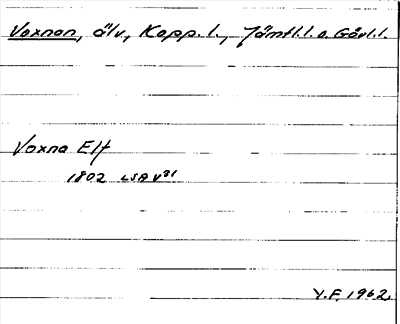 Voxnan, älv, Kopp. l., Jämtl. l. o. Gävl. l.
Voxna Elf
1802 LSA V31
Y.F. 1962.